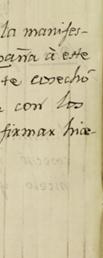 la manifes-
paña â este
te cosechô
a con los
firmar hiçe-